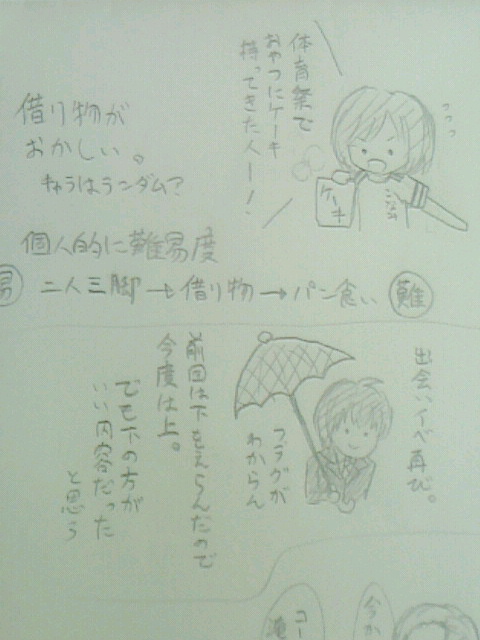 体育祭で
おやつにケーキ
持ってきた人ー！
ケーキ
借り物が
おかしい。
キャラはランダム？
個人的に難易度
易 二人三脚→借り物→パン食い 難
出会いイベ再び。
フラグが
わからん
前回は下をえらんだので
今度は上。
でも下の方が
いい内容だった
と思う
今か
コー